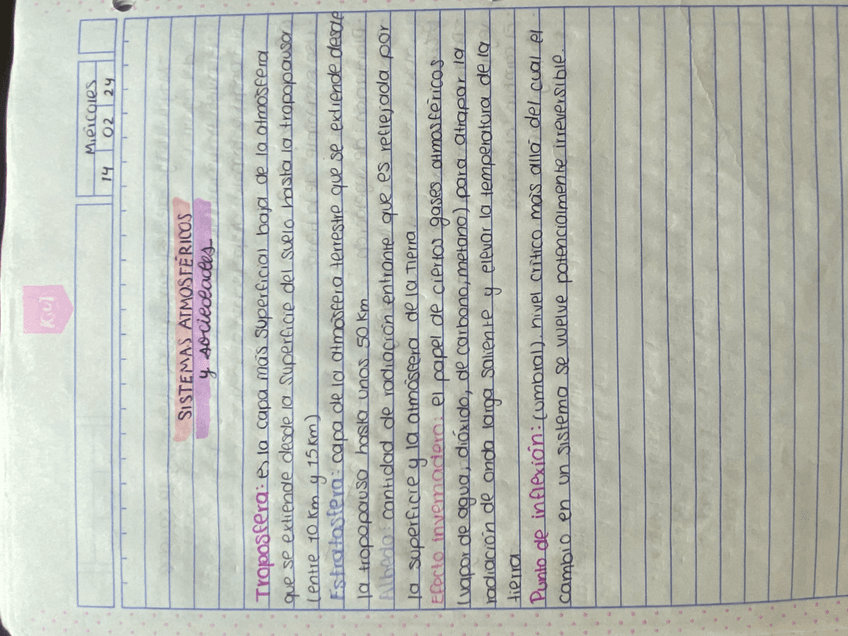 Miércoles
14 02 24
SISTEMAS ATMOSFÉRICOS
y sociedades
Troposfera: es la capa más superficial baja de la atmósfera
que se extiende desde la superficie del suelo hasta la tropopausa
(entre 10 Km y 15 Km)
Estratosfera: capa de la atmósfera terrestre que se extiende desde
la tropopausa hasta unos 50 Km
Albedo: cantidad de radiación entrante que es reflejada por
la superficie y la atmósfera de la Tierra
Efecto invernadero: el papel de ciertos gases atmosféricos
(vapor de agua, dióxido, de carbono, metano) para atrapar la
radiación de onda larga saliente y elevar la temperatura de la
tierra
Punto de inflexión: (umbral). nivel crítico más allá del cual el
cambio en un sistema se vuelve potencialmente irreversible.